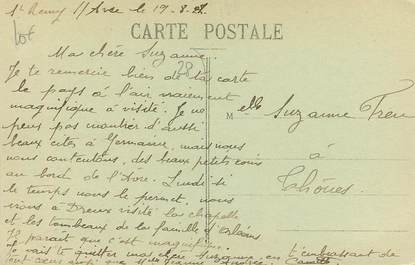 St Remy s/ Avre le 17-8-28.
lot
CARTE POSTALE
Ma chère Suzanne.
28
Je te remercie bien de ta carte
le pays à l'air vraiment
magnifique à visité. Je ne
peux pas montrer d'aussi
beaux cités à Germaine, mais nous
nous contentons, des beaux petits coins
au bord de l'Avre. Lundi si
le temps nous le permet, nous
irons à Dreux visité la chapelle
et les tombeaux de la famille d'Orléans
Il parait que c'est magnifique.
Je vais te quitter ma chère Suzanne en t'embrassant de
tout cœur ainsi que
Melle Suzanne
à
Thônes.